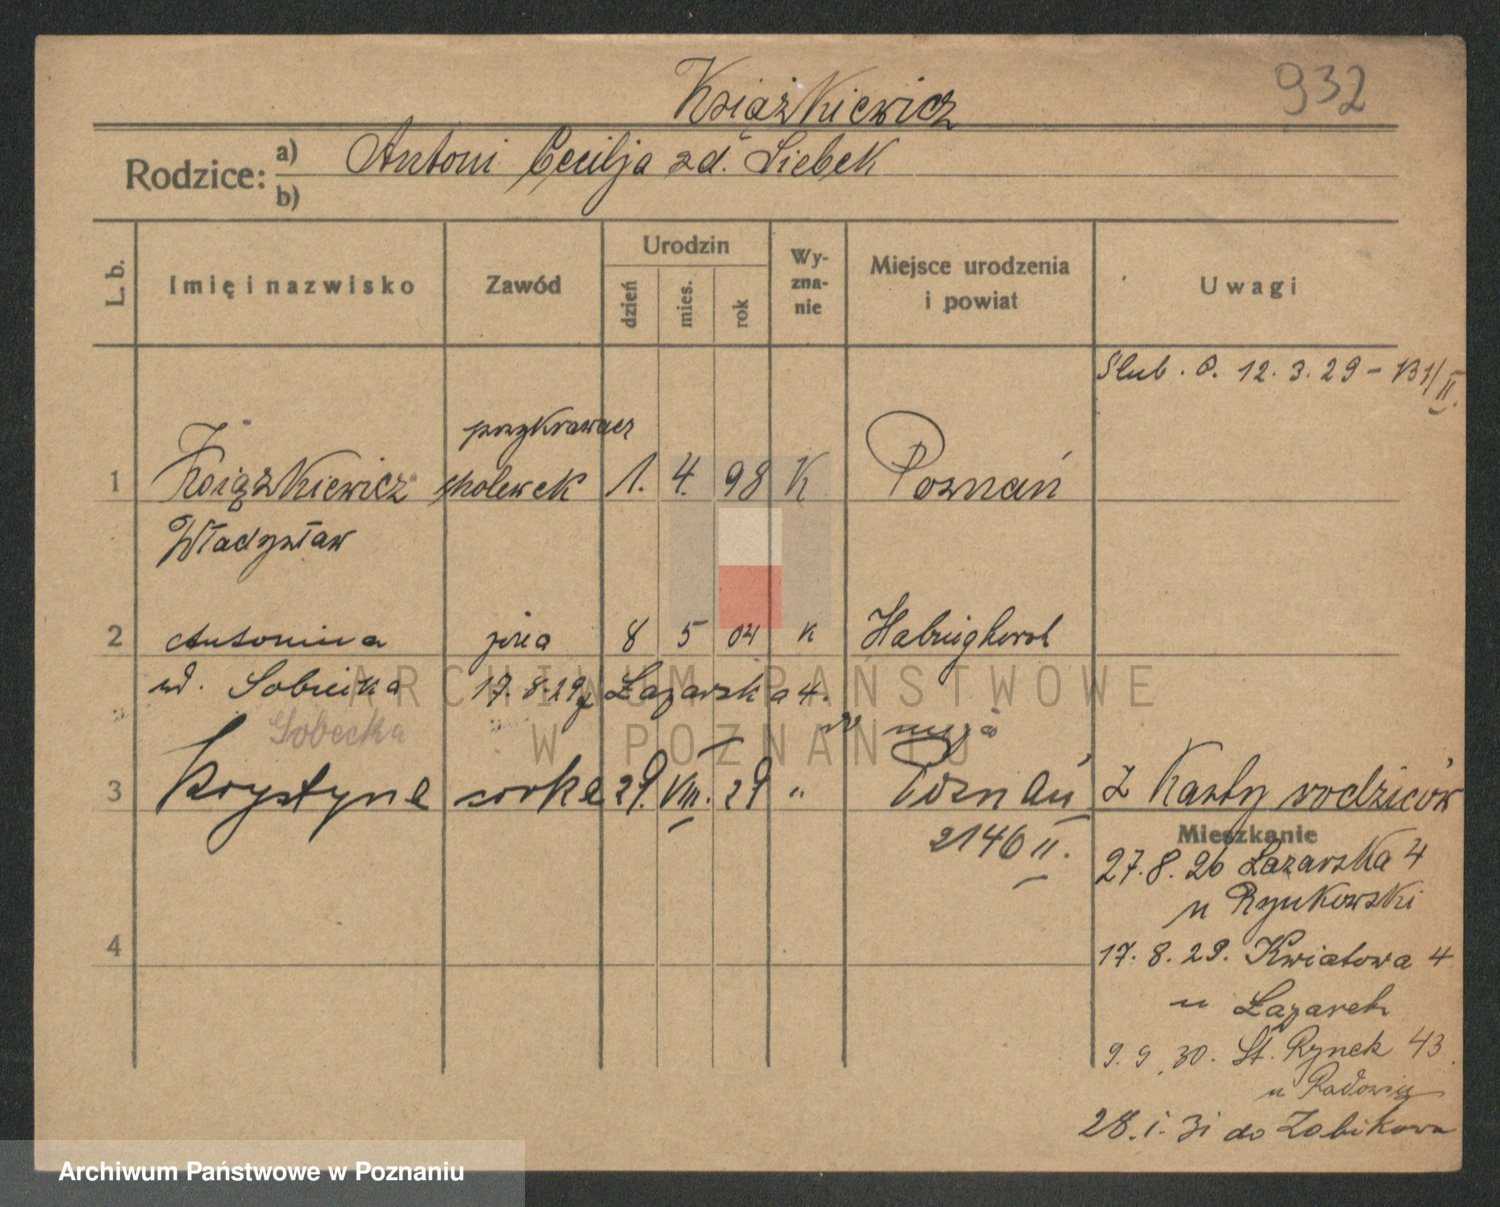 Książkiewicz
932
Rodzice: a) Antoni Cecilja zd. Liebek
b)
L. b.
Imię i nazwisko
Zawód
Urodzin
dzień
mies.
rok
Wy-
zna-
nie
Miejsce urodzenia
i powiat
Uwagi
Slub. P. 12. 3. 29 - 131/II.
przykrawacz
1 Książkiewicz cholewek 1. 4. 98 K Poznań
Władysław
2 Antonina żona 8 5 04 K
ud. Sobiecka 17. 8. 29 z Łazarska 4.
Sobecka
męża
3 Krystyna córka 29. VIII. 29 " Poznań Z Karty rodziców
2146 II.
Mieszkanie
27. 8. 26 Łazarska 4
u Rynkowski
4
17. 8. 29. Kwiatowa 4
u Łazarek
9. 9. 30. St. Rynek 43
u
28. I. 31 do Żabikowa
ARCHIWUM PAŃSTWOWE
W POZNANIU
Archiwum Państwowe w Poznaniu